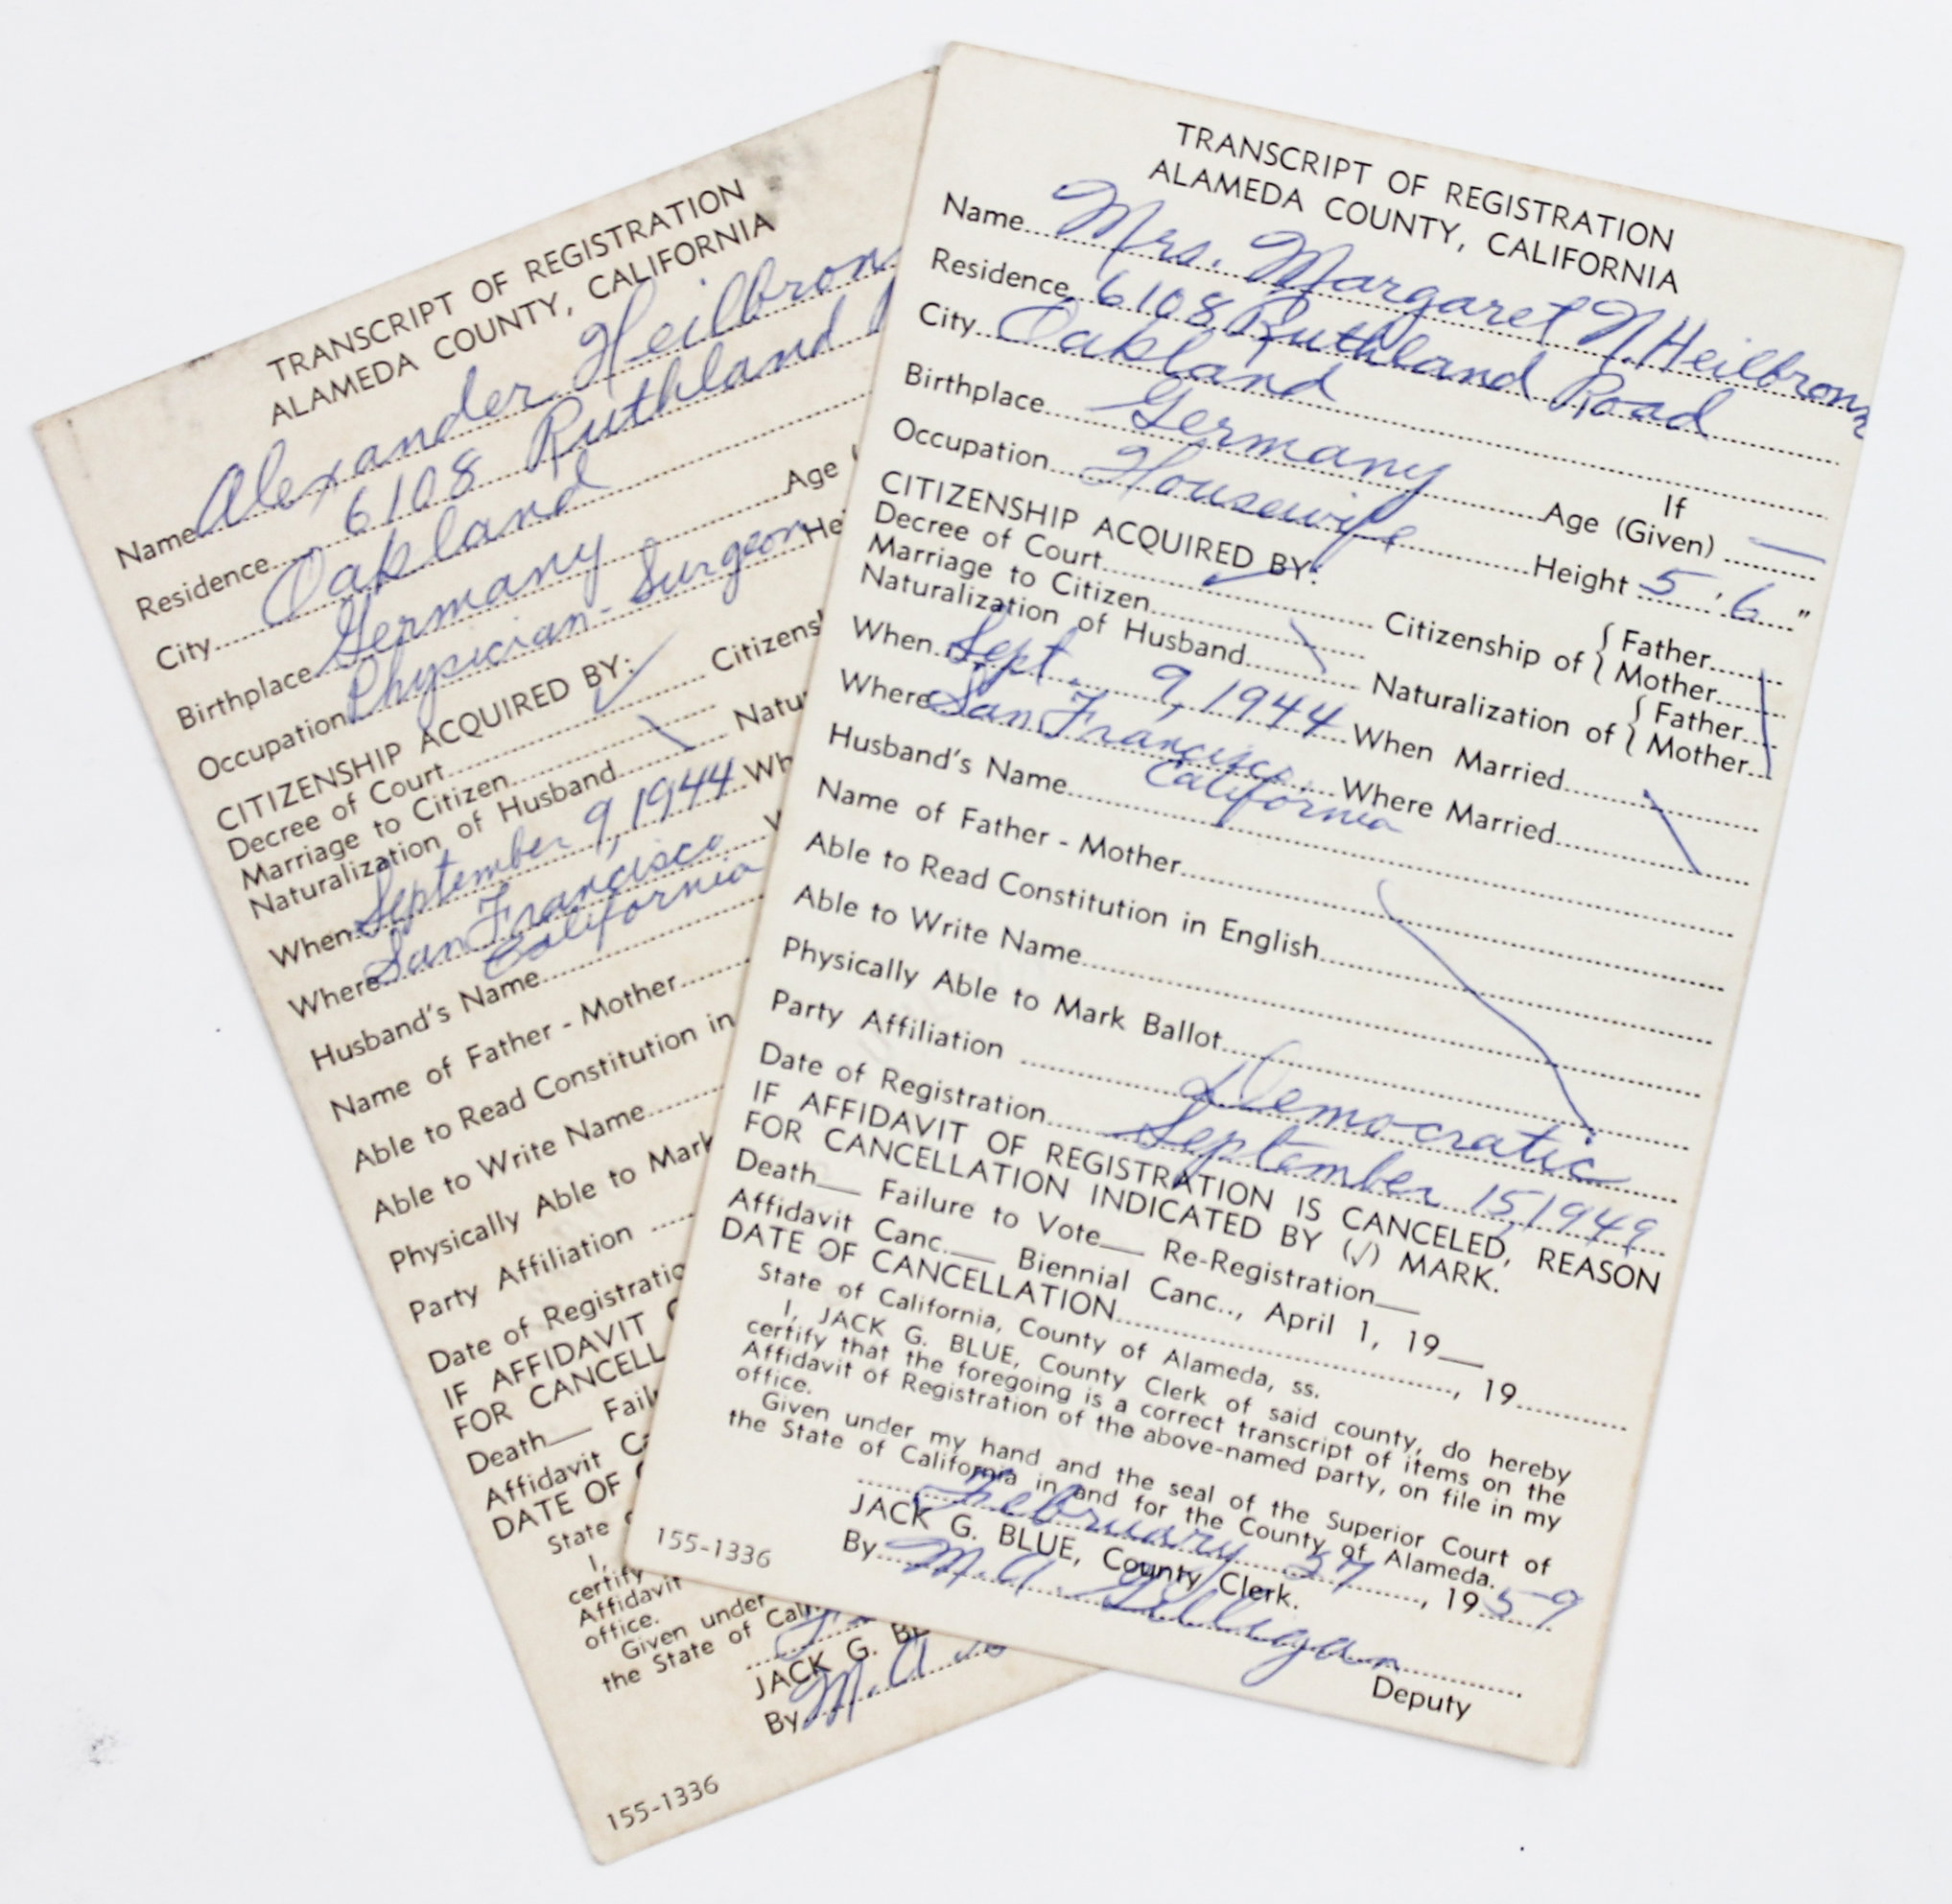 TRANSCRIPT OF REGISTRATION
ALAMEDA COUNTY, CALIFORNIA
Name Alexander Heilbron
Residence 6108 Ruthland
City Oakland
Birthplace Germany Age
Occupation Physician-Surgeon He
CITIZENSHIP ACQUIRED BY:
Decree of Court ✓ Citizens
Marriage to Citizen
Naturalization of Husband Natu
When September 9, 1944 Wh
Where San Francisco
California
Husband's Name
Name of Father - Mother
Able to Read Constitution in
Able to Write Name
Physically Able to Mark
Party Affiliation
Date of Registratio
IF AFFIDAVIT
FOR CANCELL
Death Fail
Affidavit C
DATE OF
State
I,
certify
Affidavit
office.
Given under
the State of Cali
JACK G. B
By M. A.
155-1336
TRANSCRIPT OF REGISTRATION
ALAMEDA COUNTY, CALIFORNIA
Name Mrs. Margaret N. Heilbronn
Residence 6108 Ruthland Road
City Oakland
Birthplace Germany If Age (Given) —
Occupation Housewife Height 5 ' 6 "
CITIZENSHIP ACQUIRED BY:
Decree of Court ✓ Citizenship of { Father
Marriage to Citizen { Mother
Naturalization of Husband Naturalization of { Father
{ Mother
When Sept. 9, 1944 When Married
Where San Francisco, Where Married
California
Husband's Name
Name of Father - Mother
Able to Read Constitution in English
Able to Write Name
Physically Able to Mark Ballot
Party Affiliation Democratic
Date of Registration September 15, 1949
IF AFFIDAVIT OF REGISTRATION IS CANCELED, REASON
FOR CANCELLATION INDICATED BY (√) MARK.
Death__ Failure to Vote__ Re-Registration__
Affidavit Canc.__ Biennial Canc.., April 1, 19__
DATE OF CANCELLATION, 19
State of California, County of Alameda, ss.
I, JACK G. BLUE, County Clerk of said county, do hereby
certify that the foregoing is a correct transcript of items on the
Affidavit of Registration of the above-named party, on file in my
office.
Given under my hand and the seal of the Superior Court of
the State of California in and for the County of Alameda.
February 27, 1959
JACK G. BLUE, County Clerk.
By M. A. Gilligan
Deputy
155-1336